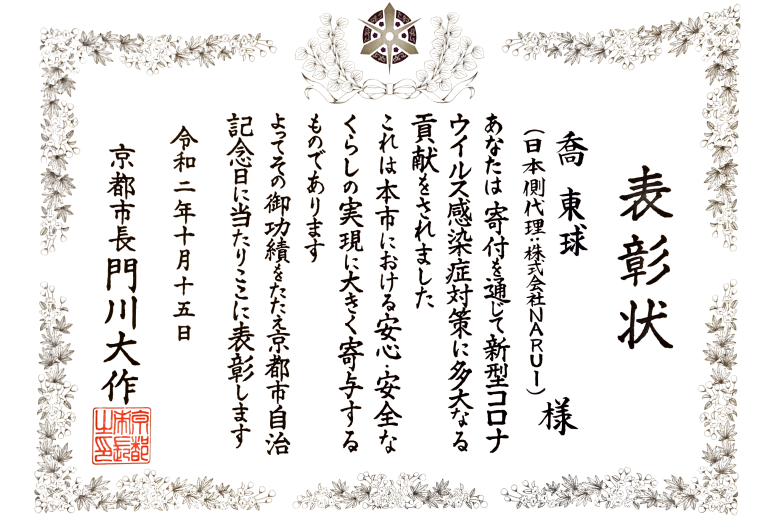 表彰状
喬東球
(日本側代理:株式会社NARUI)
様
あなたは寄付を通じて新型コロナ
ウイルス感染症対策に多大なる
貢献をされました
これは本市における安心・安全な
くらしの実現に大きく寄与する
ものであります
よってその御功績をたたえ京都市自治
記念日に当たりここに表彰します
令和二年十月十五日
京都市長門川大作
京都
市長
之印